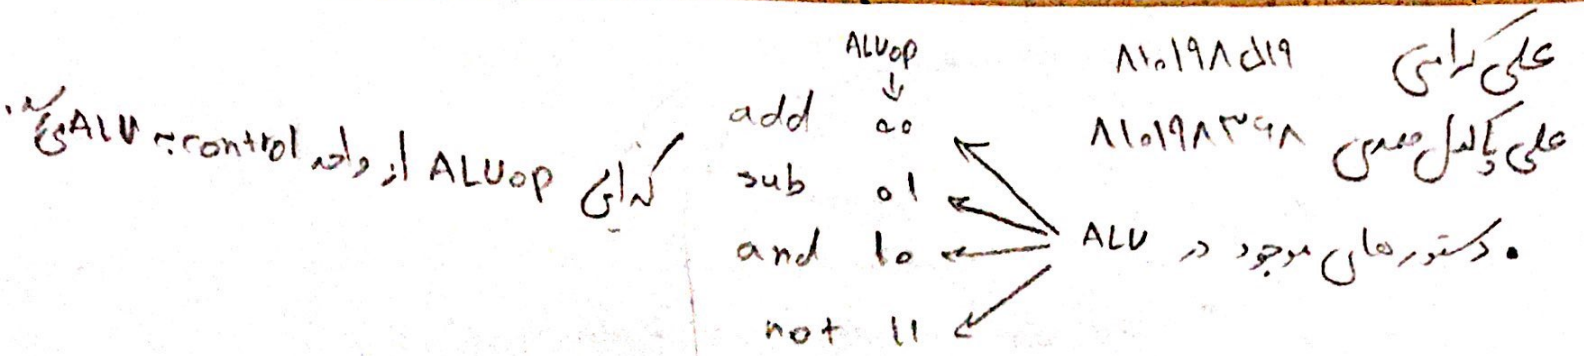 علی کرامتی ۸۱۰۱۹۸۵۱۹
علی پاکدل صمدی ۸۱۰۱۹۸۳۶۸
• دستورهای موجود در ALU
ALUop
↓
add 00
sub 01
and 10
not 11
که این ALUop از واحد control به ALU می‌آید.